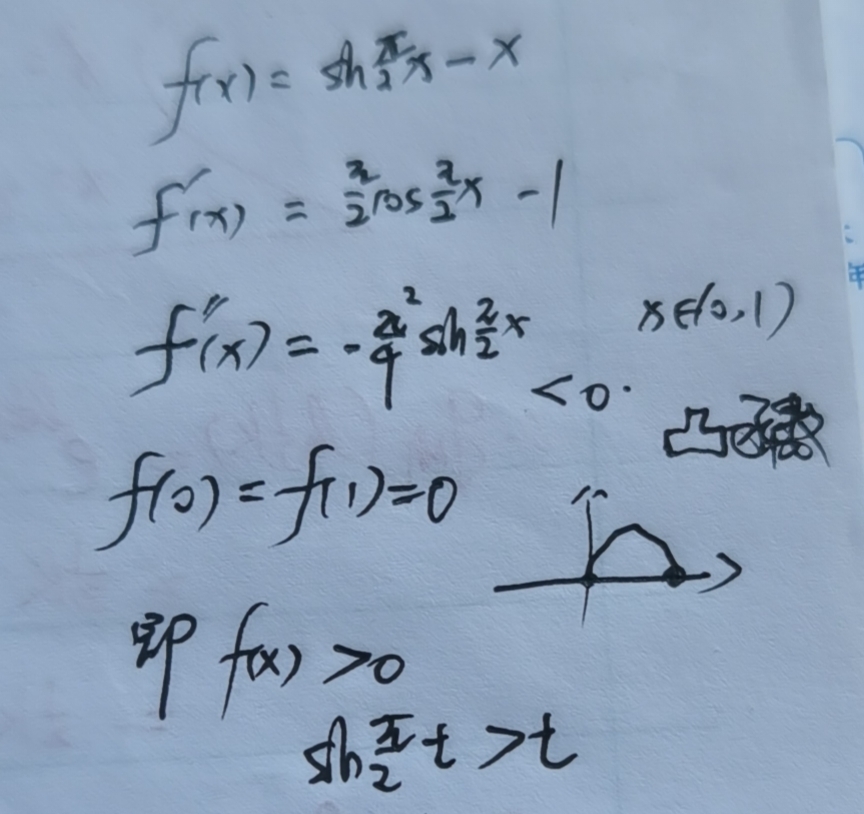 f(x) = sin π/2 x - x
f'(x) = π/2 cos π/2 x - 1
f''(x) = - π²/4 sin π/2 x < 0. x∈(0,1)
凸
f(0) = f(1) = 0
即 f(x) > 0
sin π/2 t > t